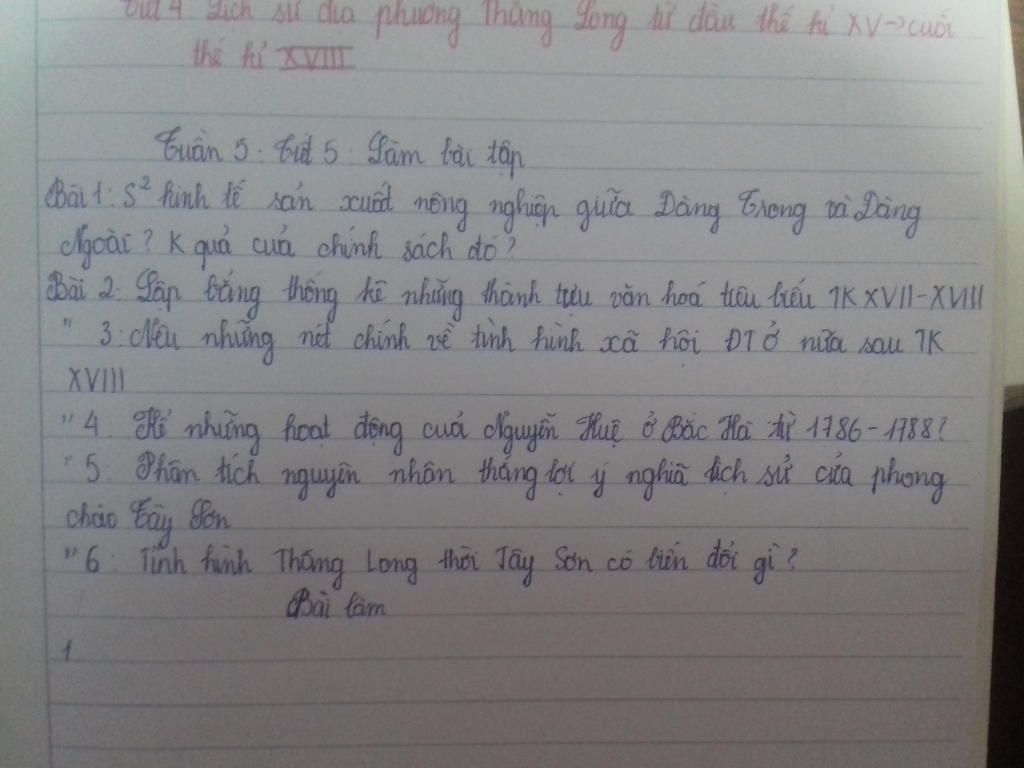 Tiết 4 Lịch sử địa phương Thăng Long từ đầu thế kỉ XV→cuối
thế kỉ XVIII
Tuần 5. Tiết 5: Làm bài tập
Bài 1: S² kinh tế sản xuất nông nghiệp giữa Đàng Trong và Đàng
Ngoài? K quả cuả chính sách đó?
Bài 2: Lập bảng thống kê những thành tựu văn hoá tiêu biểu TK XVII-XVIII
" 3: Nêu những nét chính về tình hình xã hội ĐTỞ nữa sau TK
XVIII
" 4: Kể những hoạt động cuả Nguyễn Huệ ở Bắc Hà từ 1786-1788?
" 5: Phân tích nguyên nhân thắng lợi ý nghiã lịch sử của phong
chào Tây Sơn
" 6: Tình hình Thăng Long thời Tây Sơn có biến đổi gì?
Bài làm
1.